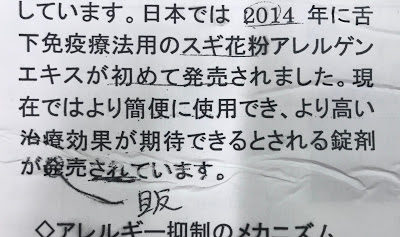 しています。日本では 2014 年に舌
下免疫療法用のスギ花粉アレルゲン
エキスが初めて発売されました。現
在ではより簡便に使用でき、より高い
治療効果が期待できるとされる錠剤
が発売されています。
販
◇アレルギー抑制のメカニズム